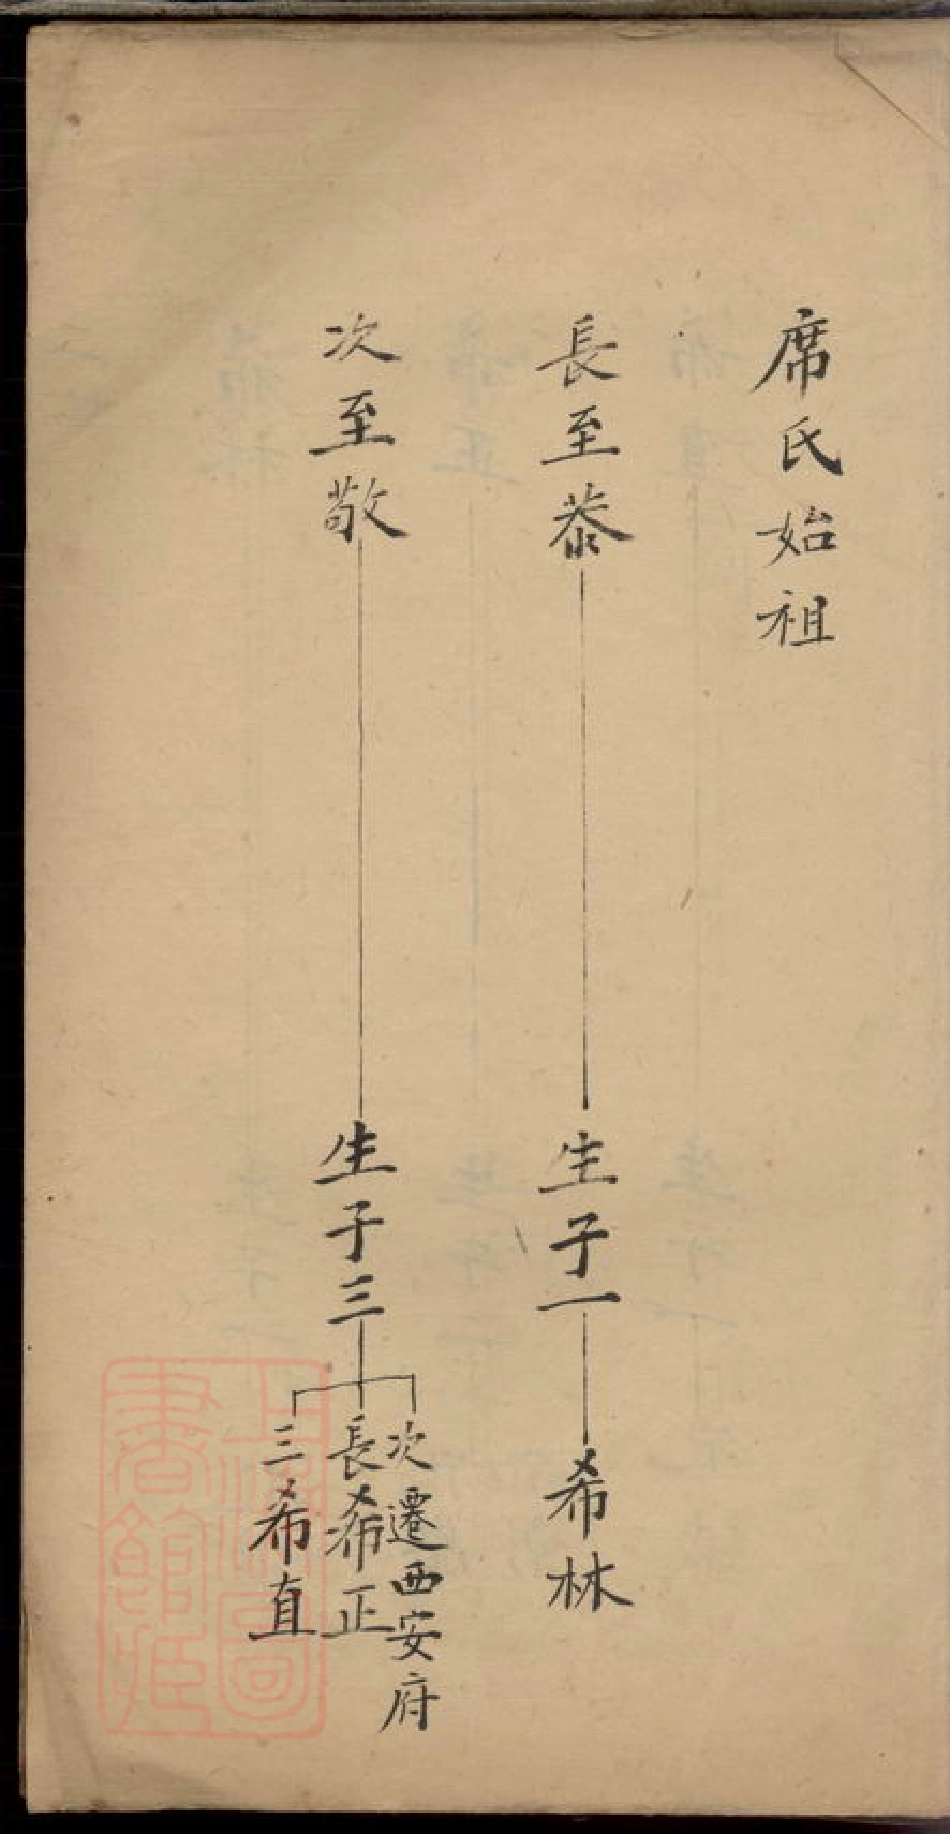 席氏始祖
長至㤗
生子一
希林
次至敬
生子三
次遷西安府
長希正
三希直